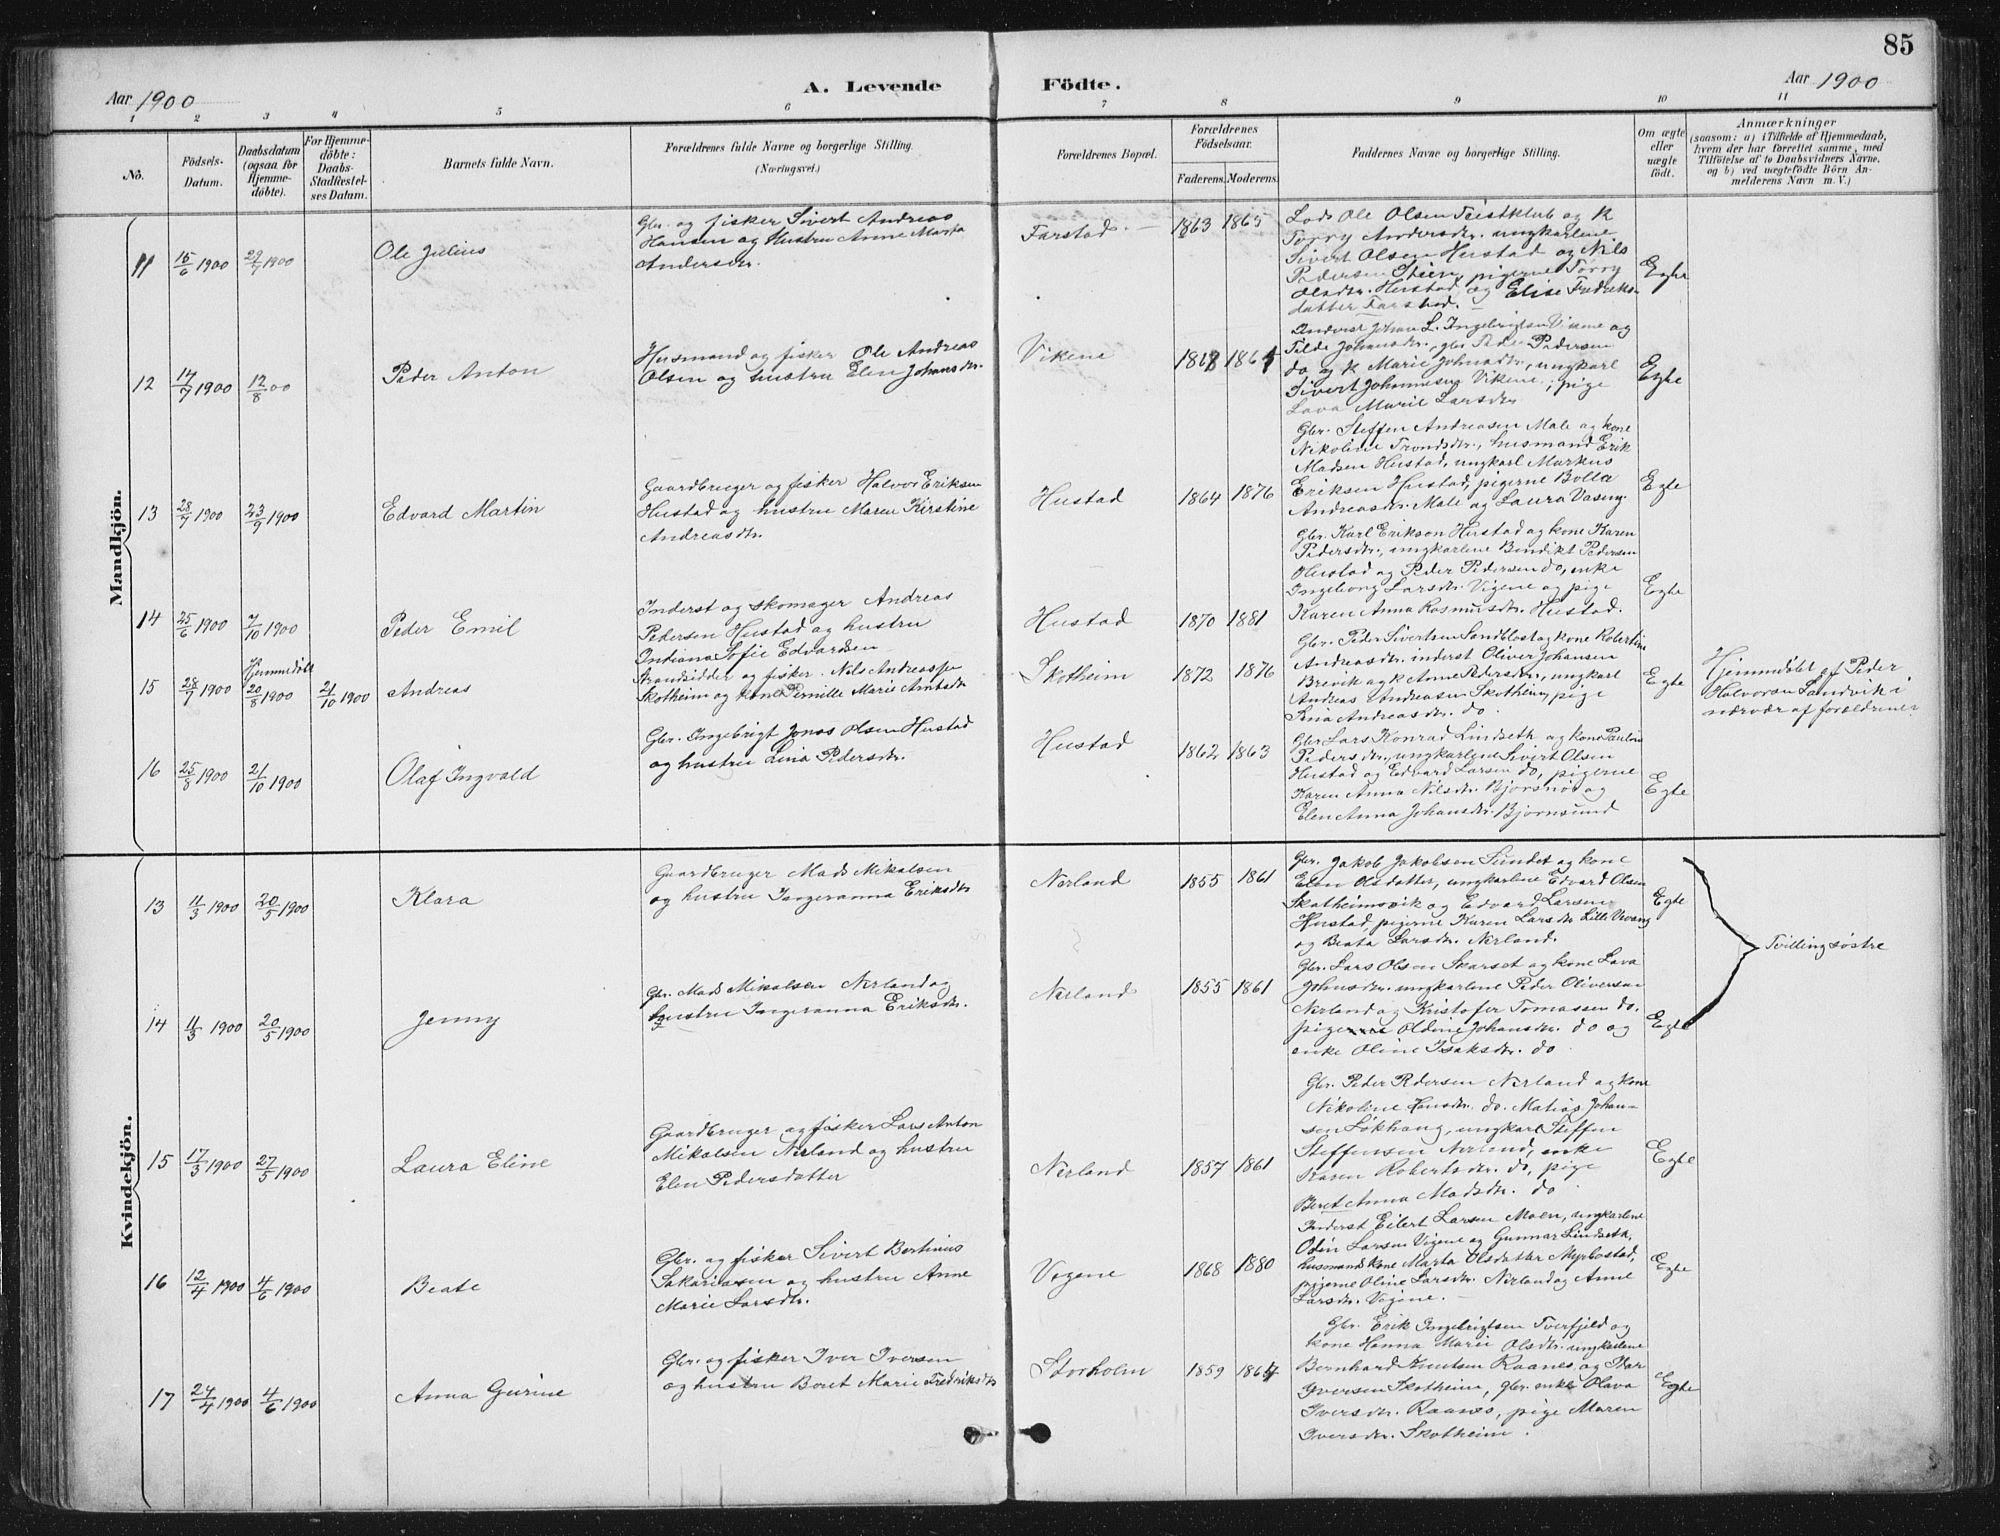 85
Aar 1900
A. Levende Födte.
Aar 1900
1 2 3 4 5 6 7 8 9 10 11
No.
Födsels-Datum.
Daabsdatum (ogsaa for Hjemme-döbte).
For Hjemme-döbte: Daabs-Stadfæstel-ses Datum.
Barnets fulde Navn.
Forældrenes fulde Navne og borgerlige Stilling.
(Næringsvei.)
Forældrenes Bopæl.
Forældrenes Födselsaar.
Faderens. Moderens.
Faddernes Navne og borgerlige Stilling.
Om ægte eller uægte födt.
Anmærkninger
(saasom: a) i Tilfælde af Hjemmedaab,
hvem der har forrettet samme, med
Tilföielse af to Daabsvidners Navne,
og b) ved uægtefödte Börn An-
melderens Navn m. V.)
Mandkjön.
11 15/6 1900 22/7 1900 Ole Julius
Gbr. og fisker Sivert Andreas
Hansen og Hustru Anne Marta
Andersdtr.
Farstad. 1863 1865
Lods Ole Olsen Teistklub og K
Torry Andersdtr. ungkarlene
Sivert Olsen Hustad og Nils
Pedersen Stien, pigerne Torry
Olsdtr. Hustad og Elise Fredriks-
datter Farstad.
Egte
12 14/7 1900 12/8 00 Peder Anton
Husmand og fisker Ole Andreas
Olsen og hustru Elen Johansdtr.
Vikene 1868 1864
Inderst Johan L. Ingebrigtsen Vikene og
Tilde Johansdtr., gbr Peder Pedersen
do og K Marie Johnsdtr., ungkarl
Sivert Johannesen Vikene, pige
Lava Marie Larsdtr
Egte
13 28/7 1900 23/9 1900 Edvard Martin
Gaardbruger og fisker Halvor Eriksen
Hustad og hustru Maren Kirstine
Andreasdtr.
Hustad 1864 1876
Gbr. Steffen Andreasen Male og kone
Nikoline Trondsdtr., husmand Erik
Madsen Hustad, ungkarl Markus
Eriksen Hustad, pigerne Bolla
Andreasdtr. Male og Laura Vaseng
Egte
14 25/6 1900 7/10 1900 Peder Emil
Inderst og skomager Andreas
Pedersen Hustad og hustru
Indiana Sofie Edvardsen
Hustad 1870 1881
Gbr. Karl Erikson Hustad og kone Karen
Pedersdtr., ungkarlene Bendikt Pedersen
Hustad og Peder Pedersen do, enke
Ingeborg Larsdtr. Vigene og pige
Karen Anna Rasmusdtr. Hustad.
Egte
15 28/7 1900 Hjemmedøbt 20/8 1900 21/10 1900 Andreas
Strandsidder og fisker Nils Andreas
Skotheim og kone Pernille Marie Arntsdtr
Skotheim 1872 1876
Gbr. Peder Sivertsen Sandblost og kone Robertine
Andreasdtr. inderst Oliver Johansen
Brevik og K Anne Pedersdtr., ungkarl
Andreas Andreasen Skotheim, pige
Lina Andreasdtr. do.
Egte
Hjemmdøbt af Peder
Halvorsen Sandvik i
nærvær af forældrene.
16 25/8 1900 21/10 1900 Olaf Ingvald
Gbr. Ingebrigt Jonas Olsen Hustad
og hustru Lina Pedersdtr.
Hustad 1862 1863
Gbr. Lars Konrad Lindseth og kone Pauline
Pedersdtr., ungkarlene Sivert Olsen
Hustad og Edvard Larsen do, pigerne
Karen Anna Nilsdtr. Bjørsnøs og
Elen Anna Johansdtr. Bjørnsund
Egte
Kvindekjön.
13 11/3 1900 20/5 1900 Klara
Gaardbruger Mads Mikalsen
og hustru Ingeranna Eriksdtr
Nerland 1855 1861
Gbr. Jakob Jakobsen Sundet og kone
Elen Olsdatter, ungkarlene Edvard Olsen
Skotheimsvik og Edvard Larsen
Hustad, pigerne Karen Larsdtr Lille Vevang
og Beata Larsdtr. Nerland.
Egte
Tvillingsøstre
14 11/3 1900 20/5 1900 Jenny
Gbr. Mads Mikalsen Nerland og
hustru Ingeranna Eriksdtr.
Nerland 1855 1861
Gbr. Lars Olsen Skarset og kone Lava
Johnsdtr. ungkarlene Peder Oliversen
Nerland og Kristofer Tomassen do.
pige Oldine Johansdtr. do og
enke Oline Isaksdtr. do
Egte
15 17/3 1900 27/5 1900 Laura Eline
Gaardbruger og fisker Lars Anton
Mikalsen Nerland og hustru
Elen Pedersdatter
Nerland 1857 1861
Gbr. Peder Pedersen Nerland og kone
Nikoline Hansdtr. do. Matias Johan-
senLøkhaug, ungkarl Steffen
Steffensen Nerland, enke
Karen Robertsdtr. do, pige
Beret Anna Madsdtr. do
Egte
16 12/4 1900 4/6 1900 Beate
Gbr. og fisker Sivert Bertinus
Sakariassen og hustru Anne
Marie Larsdtr.
Vigene 1868 1880
Inderst Eilert Larsen Moen, ungkarlene
Odin Larsen Vigene og Gunnar Lindseth,
husmandskone Marta Olsdatter Myrbostad,
pigerne Oline Larsdtr. Nerland og Anne
Larsdtr. Vigene.
Egte
17 24/4 1900 4/6 1900 Anna Gurine
Gbr. og fisker Iver Iversen
og hustru Beret Marie Fredriksdtr
Storholm 1859 1864
Gbr. Erik Ingebrigtsen Tverfjeld og
kone Hanna Marie Olsdtr. ungkarlene
Bernhard Knutsen Raanes og Per
Iversen Skotheim, gbr. enke Olava
Iversdtr. Raanes, pige Maren
Iversdtr. Skotheim.
Egte